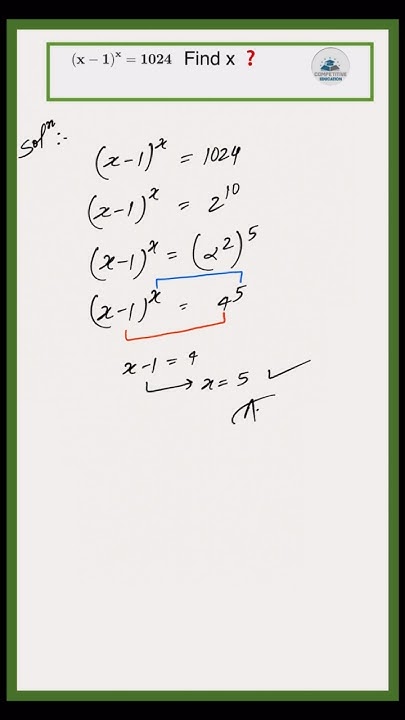 (x − 1)ˣ = 1024 Find x ❓
COMPETITIVE
EDUCATION
Solⁿ :-
(x-1)ˣ = 1024
(x-1)ˣ = 2¹⁰
(x-1)ˣ = (2²)⁵
(x-1)ˣ = 4⁵
x-1 = 4
x = 5 ✓